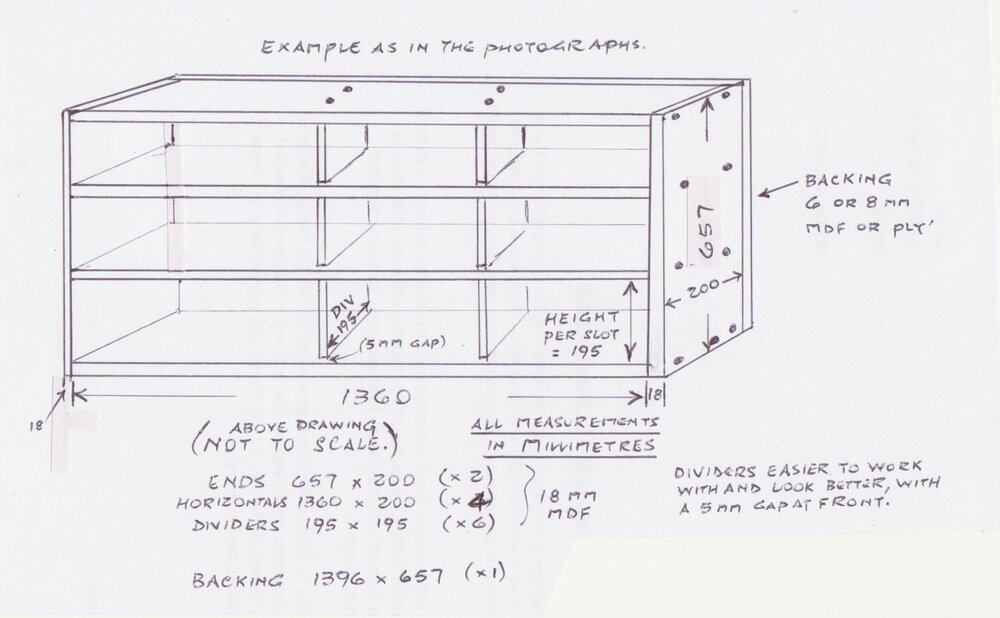 EXAMPLE AS IN THE PHOTOGRAPHS.
BACKING
6 OR 8 MM
MDF OR PLY'
657
200
DIV
195
(5MM GAP)
HEIGHT
PER SLOT
= 195
1360
18
18
(ABOVE DRAWING
NOT TO SCALE.)
ALL MEASUREMENTS
IN MILLIMETRES
ENDS 657 x 200 (x 2)
HORIZONTALS 1360 x 200 (x 4)
DIVIDERS 195 x 195 (x 6)
18 MM
MDF
DIVIDERS EASIER TO WORK
WITH AND LOOK BETTER, WITH
A 5MM GAP AT FRONT.
BACKING 1396 x 657 (x1)